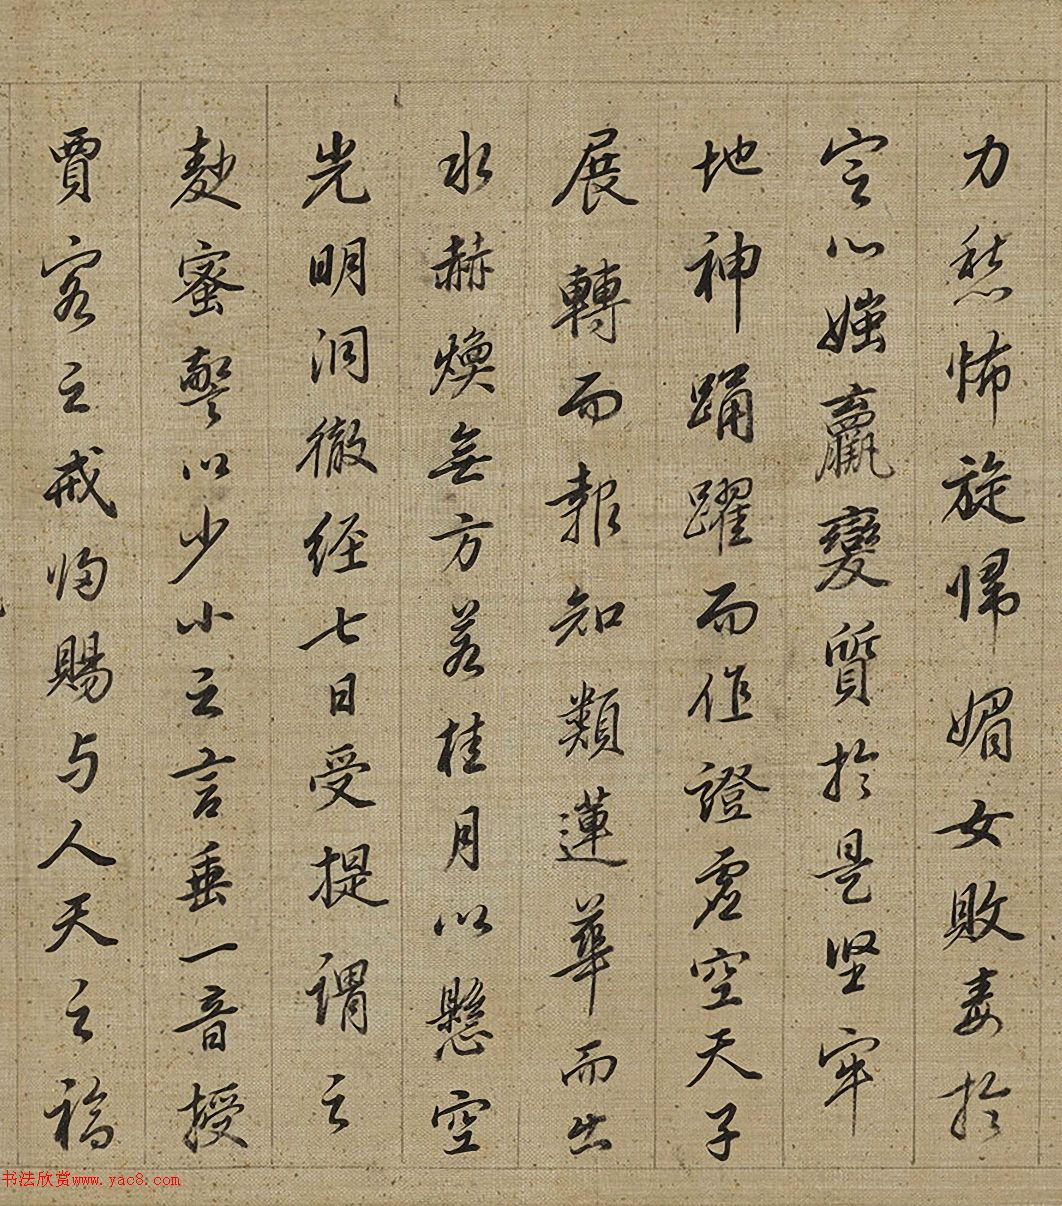 力愁怖旋歸媚女敗毒於
定心媸羸變質於是堅牢
地神踊躍而作證虛空天子
展轉而報知類蓮華而出
水赫煥無方若桂月以懸空
光明洞徹經七日受提謂之
麨蜜警以少小之言垂一音授
賈客之戒歸賜与人天之福
书法欣赏www.yac8.com